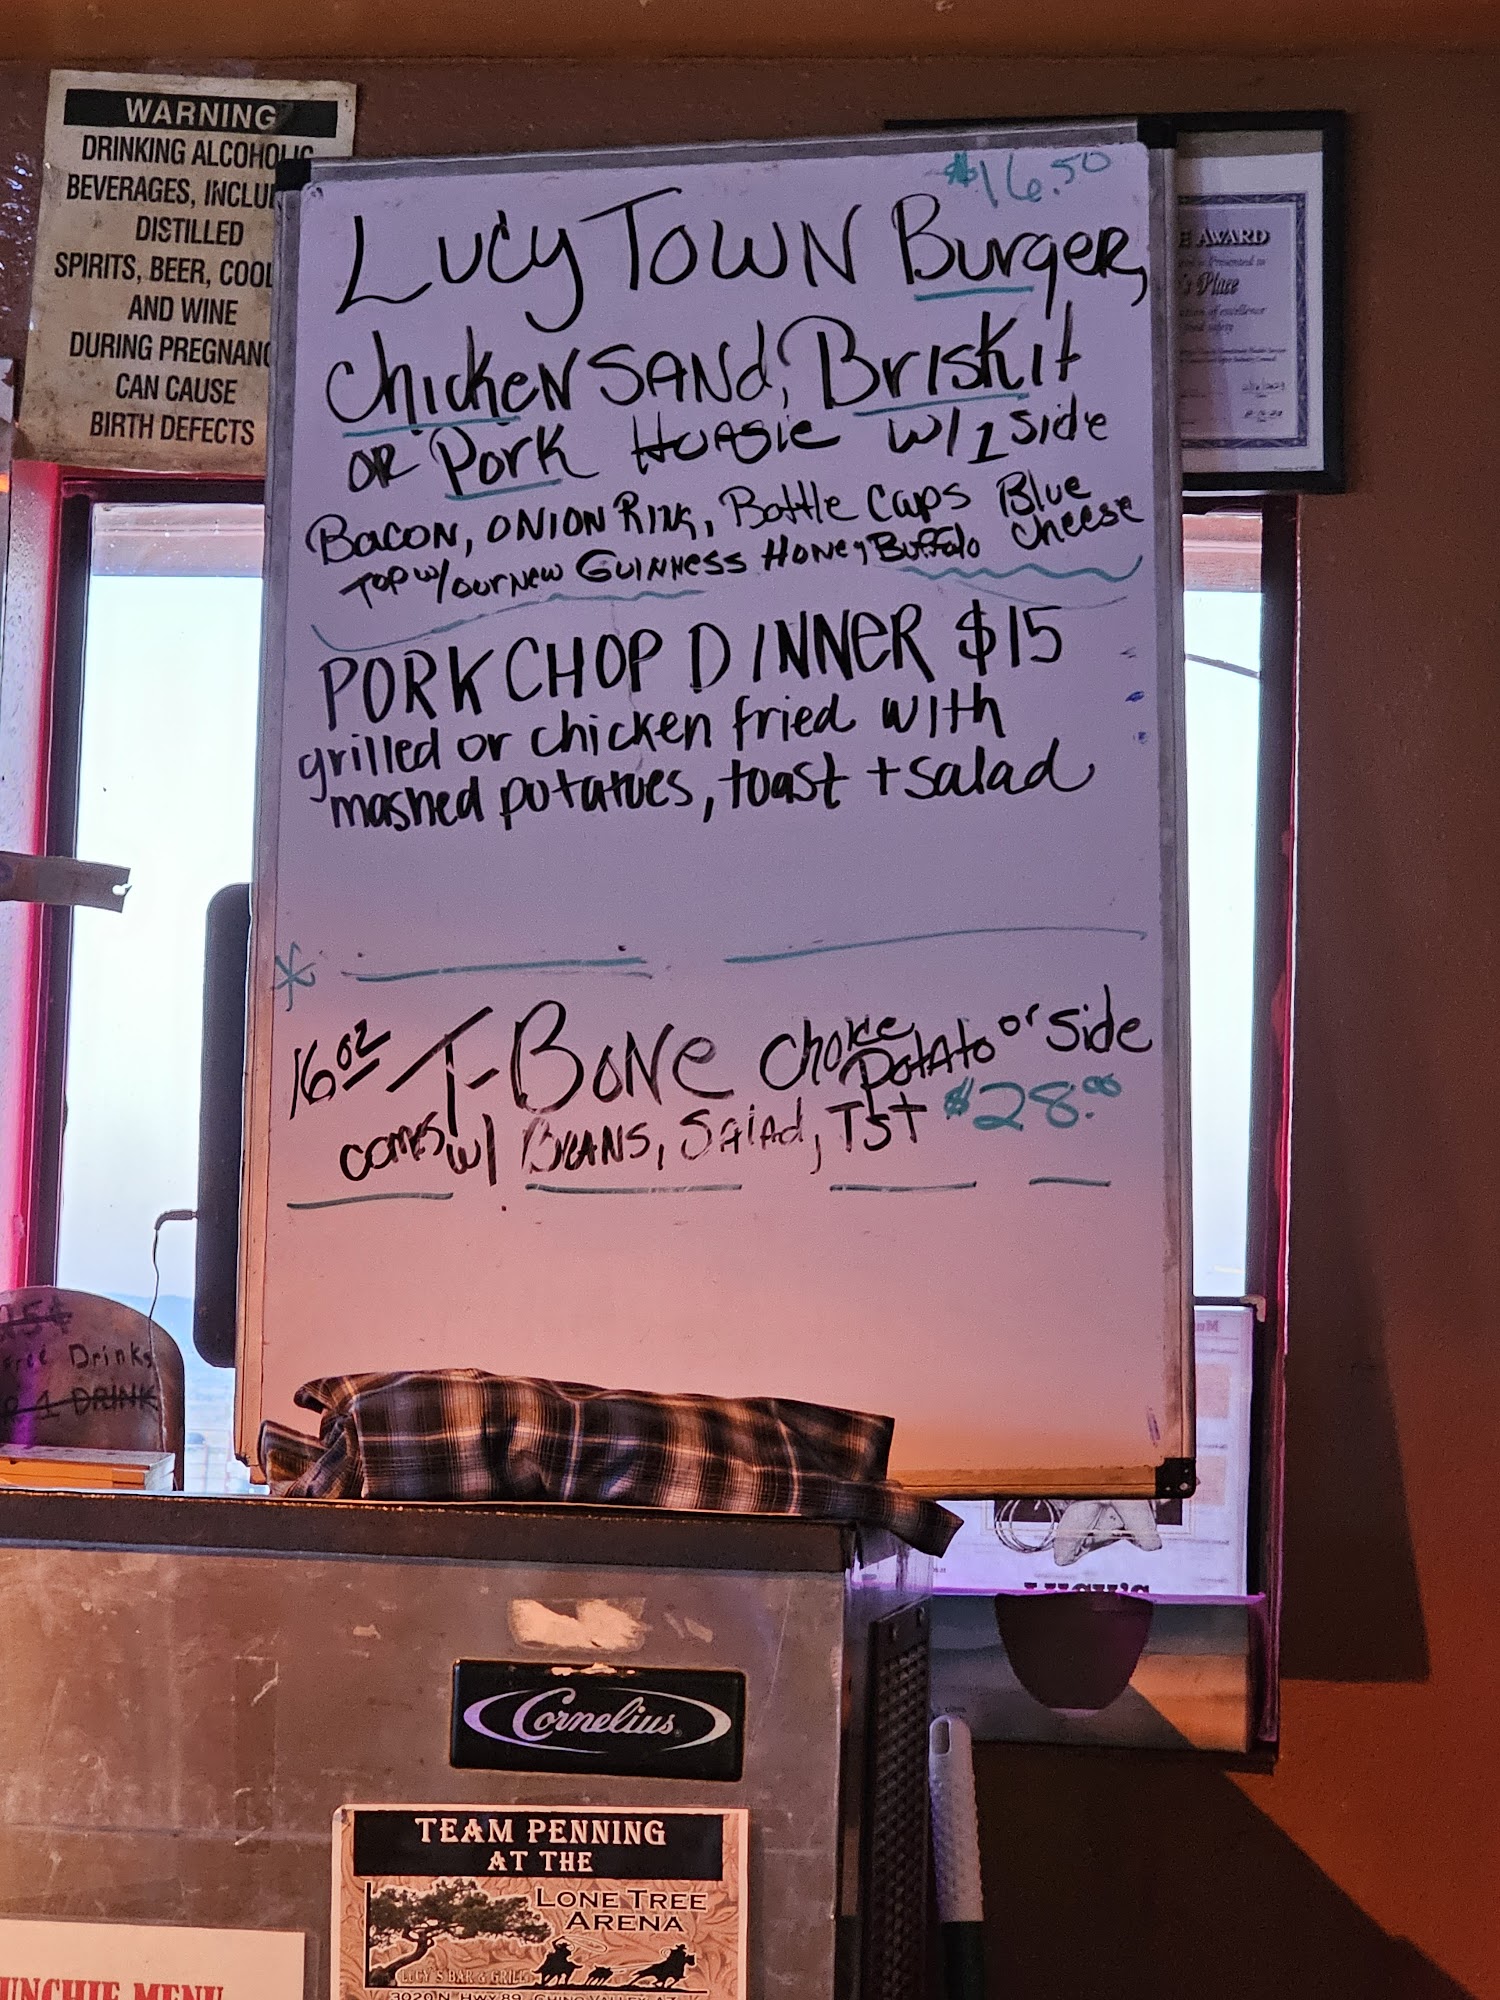 WARNING
DRINKING ALCOHOLIC
BEVERAGES, INCLU
DISTILLED
SPIRITS, BEER, COOL
AND WINE
DURING PREGNANC
CAN CAUSE
BIRTH DEFECTS
$16.50
Lucy Town Burger,
Chicken Sand, Briskit
or Pork Huagie w/1 side
Bacon, Onion Ring, Bottle Caps Blue Cheese
Top w/ our new Guinness Honey Buffalo
PORK CHOP DINNER $15
grilled or chicken fried with
mashed potatoes, toast + salad
16oz T-Bone Choice Potato or Side
comes w/ Beans, Salad, Tst $28.00
E AWARD
is Presented to
's Place
ation of excellence
food safety
25¢
Free Drinks
R 1 DRINK
LUCY'S
Cornelius
TEAM PENNING
AT THE
LONE TREE
ARENA
LUCY'S BAR & GRILL
3020 N. HWY 89, CHINO VALLEY, AZ
UNCHIE MENU